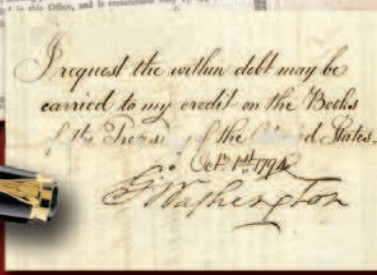 in this Office, and is transferable only by
I request the within debt may be
carried to my credit on the Books
of the of the States.
Oct. 1st 1794
G. Washington